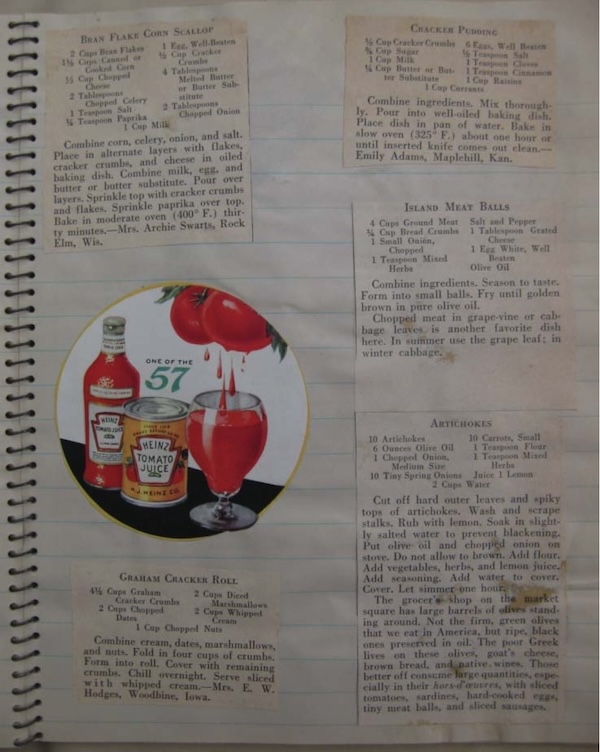 BRAN FLAKE CORN SCALLOP
2 Cups Bran Flakes
1½ Cups Canned or
Cooked Corn
½ Cup Chopped
Cheese
2 Tablespoons
Chopped Celery
1 Teaspoon Salt
¼ Teaspoon Paprika
1 Egg, Well-Beaten
½ Cup Cracker
Crumbs
4 Tablespoons
Melted Butter
or Butter Sub-
stitute
2 Tablespoons
Chopped Onion
1 Cup Milk
Combine corn, celery, onion, and salt.
Place in alternate layers with flakes,
cracker crumbs, and cheese in oiled
baking dish. Combine milk, egg, and
butter or butter substitute. Pour over
layers. Sprinkle top with cracker crumbs
and flakes. Sprinkle paprika over top.
Bake in moderate oven (400° F.) thir-
ty minutes.—Mrs. Archie Swarts, Rock
Elm, Wis.
ONE OF THE
57
HEINZ
TOMATO JUICE
HEINZ
TOMATO
JUICE
H.J. HEINZ CO.
GRAHAM CRACKER ROLL
4½ Cups Graham
Cracker Crumbs
2 Cups Chopped
Dates
2 Cups Diced
Marshmallows
2 Cups Whipped
Cream
1 Cup Chopped Nuts
Combine cream, dates, marshmallows,
and nuts. Fold in four cups of crumbs.
Form into roll. Cover with remaining
crumbs. Chill overnight. Serve sliced
with whipped cream.—Mrs. E. W.
Hodges, Woodbine, Iowa.
CRACKER PUDDING
Cup Cracker Crumbs
Cup Sugar
1 Cup Milk
¼ Cup Butter or But-
ter Substitute
6 Eggs, Well Beaten
Teaspoon Salt
1 Teaspoon Cloves
1 Teaspoon Cinnamon
1 Cup Raisins
1 Cup Currants
Combine ingredients. Mix thorough-
ly. Pour into well-oiled baking dish.
Place dish in pan of water. Bake in
slow oven (325° F.) about one hour or
until inserted knife comes out clean.—
Emily Adams, Maplehill, Kan.
ISLAND MEAT BALLS
4 Cups Ground Meat
¾ Cup Bread Crumbs
1 Small Onion,
Chopped
1 Teaspoon Mixed
Herbs
Salt and Pepper
1 Tablespoon Grated
Cheese
1 Egg White, Well
Beaten
Olive Oil
Combine ingredients. Season to taste.
Form into small balls. Fry until golden
brown in pure olive oil.
Chopped meat in grape-vine or cab-
bage leaves is another favorite dish
here. In summer use the grape leaf; in
winter cabbage.
ARTICHOKES
10 Artichokes
6 Ounces Olive Oil
1 Chopped Onion,
Medium Size
10 Tiny Spring Onions
10 Carrots, Small
1 Teaspoon Flour
1 Teaspoon Mixed
Herbs
Juice 1 Lemon
2 Cups Water
Cut off hard outer leaves and spiky
tops of artichokes. Wash and scrape
stalks. Rub with lemon. Soak in slight-
ly salted water to prevent blackening.
Put olive oil and chopped onion on
stove. Do not allow to brown. Add flour.
Add vegetables, herbs, and lemon juice.
Add seasoning. Add water to cover.
Cover. Let simmer one hour.
The grocer's shop on the market
square has large barrels of olives stand-
ing around. Not the firm, green olives
that we eat in America, but ripe, black
ones preserved in oil. The poor Greek
lives on these olives, goat's cheese,
brown bread, and native wines. Those
better off consume large quantities, espe-
cially in their hors-d'œuvres, with sliced
tomatoes, sardines, hard-cooked eggs,
tiny meat balls, and sliced sausages.